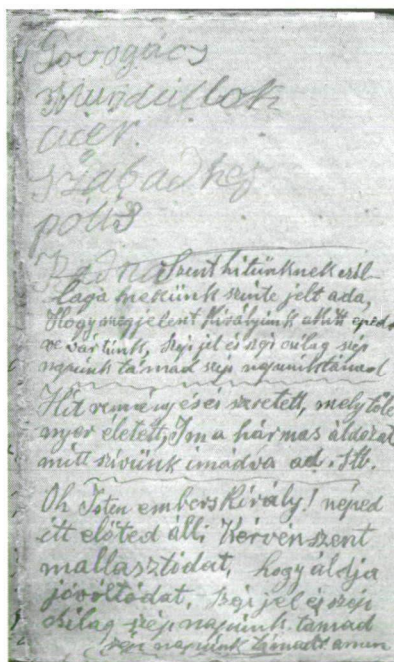 Povogács
Mundillok
szabadhej
polis
Radna
Szent hitünknek csil-
laga nekünk szinte jelt ada,
Hogy megjelent Királyunk akitt epedve
vártunk, szép jel és szép csilag szép
napunk támad szép napunk támad
Hit remény és és szeretett, mely töle
nyer életett, Im a hármas áldozat
mitt szivünk imádva ad. Stb.
Oh Isten embers Király! néped
itt elötted álli Kérvén szent
mallasztódat, hogy áldja
jóvóltódat, szép jel és szép
csilag szép napunk támad
szép napunk támadt amen